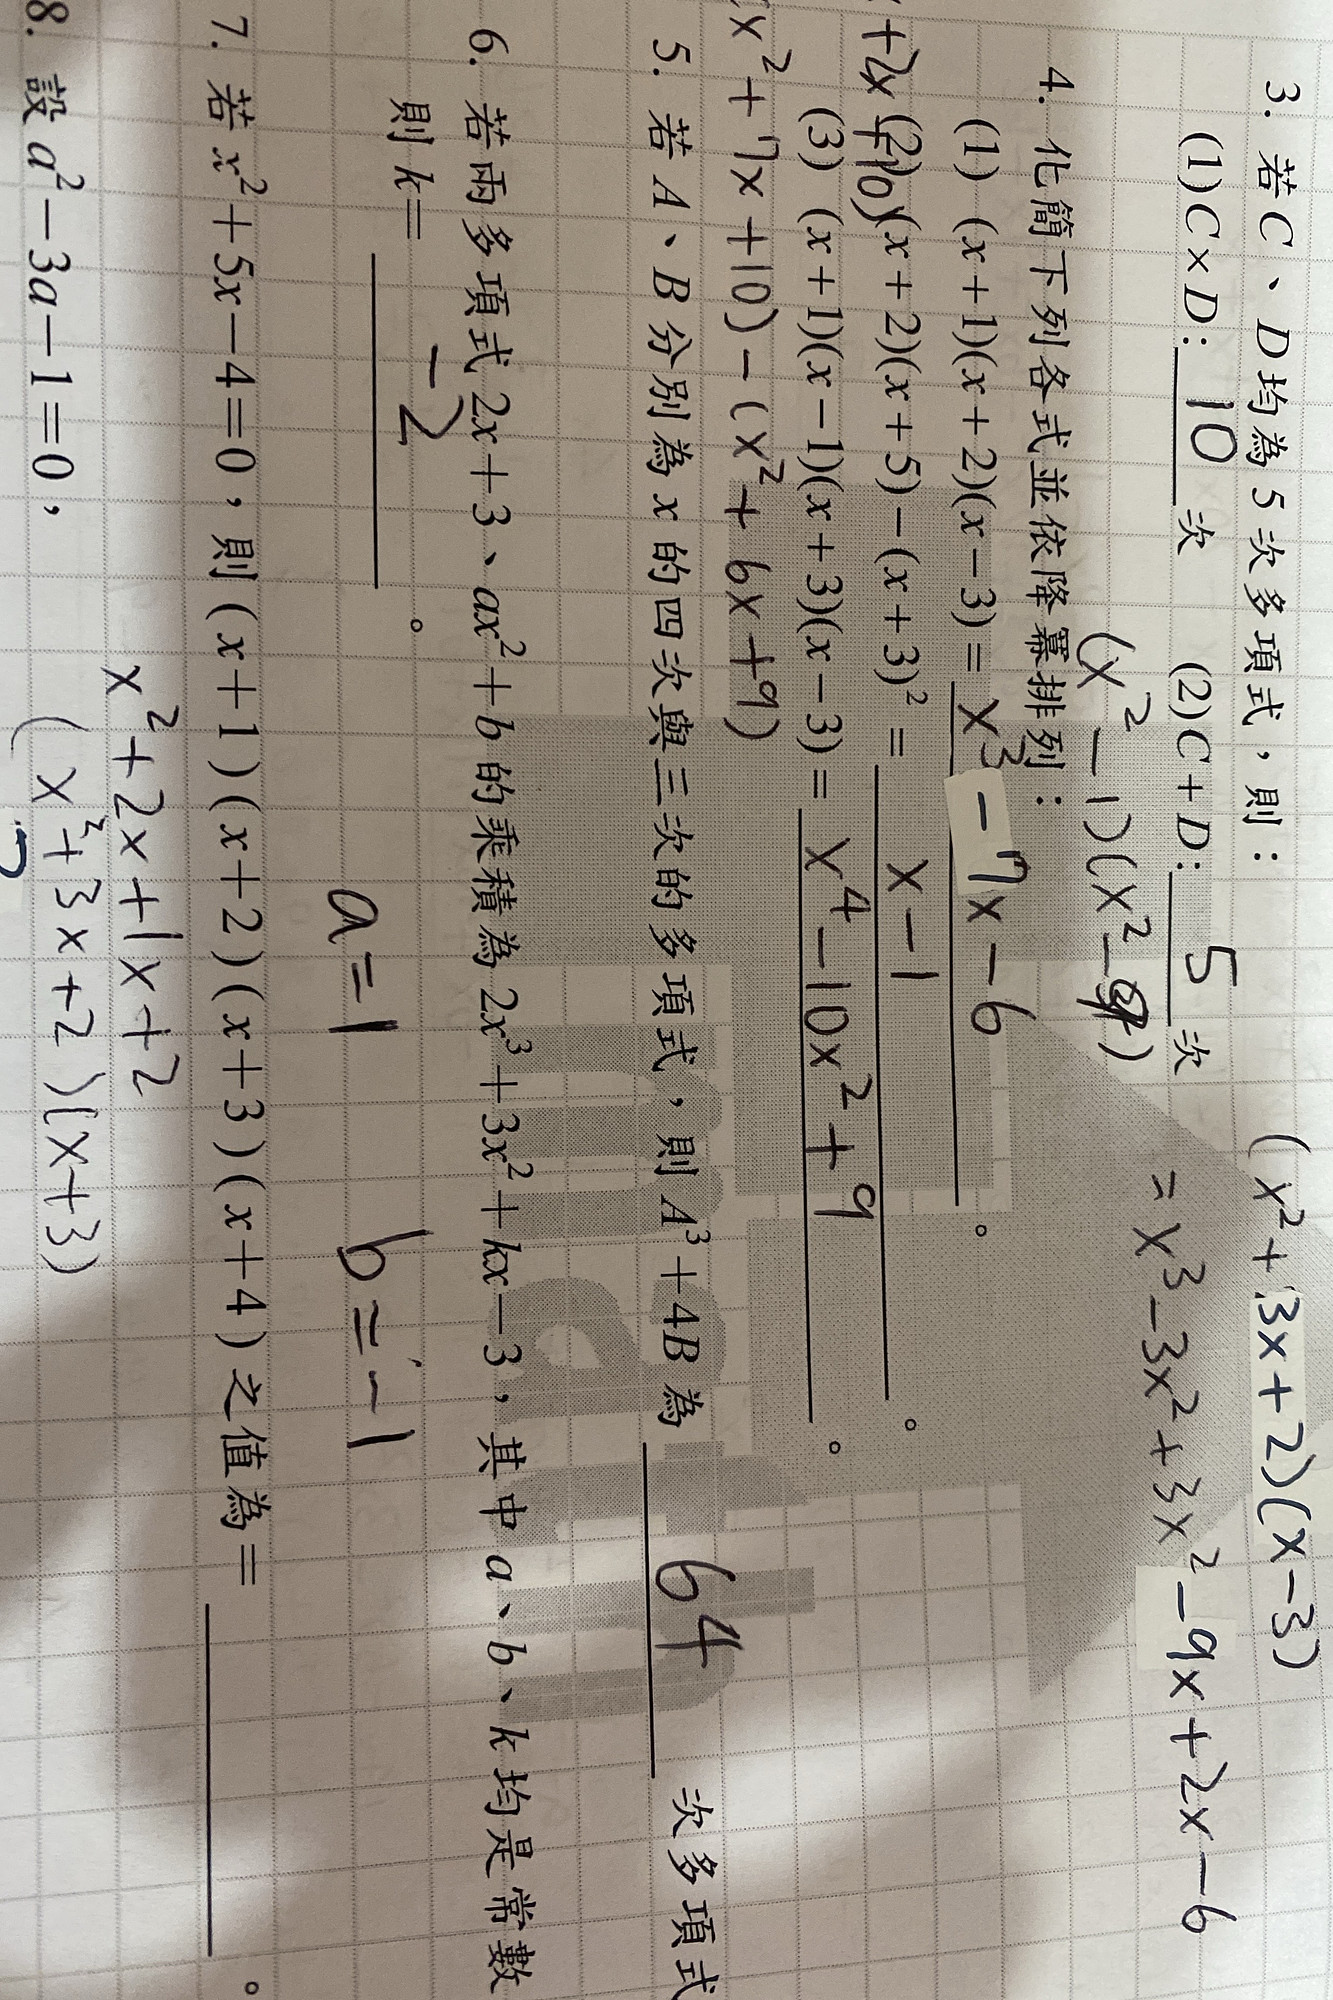 3. 若C、D均為5次多項式，則： (x²+3x+2)(x-3)
(1)C×D: 10 次 (2)C+D: 5 次 = x³-3x²+3x²-9x+2x-6
(x²-1)(x²-9)
4. 化簡下列各式並依降冪排列：
(1) (x+1)(x+2)(x-3)= x³-7x-6 。
(2) (x+2)(x+5)-(x+3)²= x-1 。
+2x+10)
(3) (x+1)(x-1)(x+3)(x-3)= x⁴-10x²+9 。
x²+7x+10)-(x²+6x+9)
5. 若A、B分別為x的四次與三次的多項式，則A³+4B為 64 次多項式
6. 若兩多項式2x+3、ax²+b的乘積為2x³+3x²+kx-3，其中a、b、k均是常數
則k= -2 。
a=1 b=-1
7. 若x²+5x-4=0，則(x+1)(x+2)(x+3)(x+4)之值為= 。
x²+2x+1x+2
(x²+3x+2)(x+3)
8. 設a²-3a-1=0，